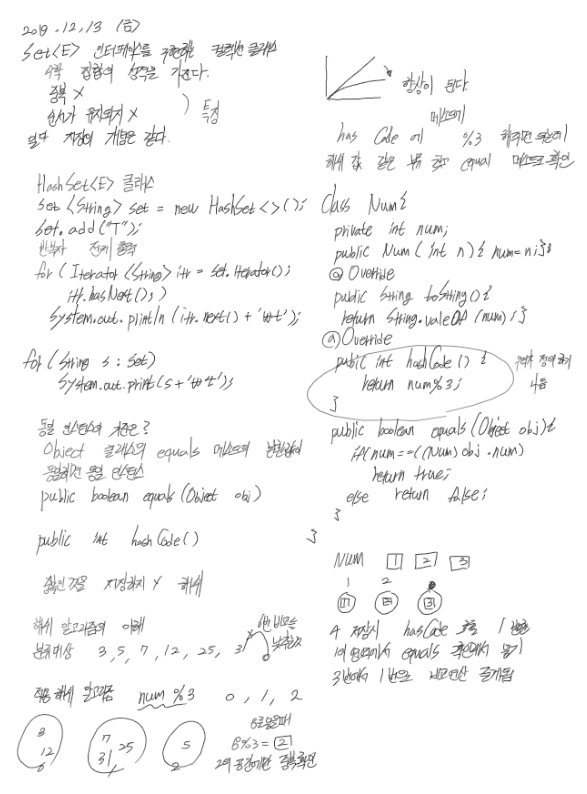 2019.12.13 (금)
Set<E> 인터페이스를 구현하는 컬렉션 클래스
수학 집합의 성격을 가진다.
중복 X
순서가 유지되지 X ) 특징
저장의 개념은 같다.
HashSet<E> 클래스
Set <String> set = new HashSet<>();
set.add("T");
반복자 전체 출력
for ( Iterator <String> itr = set.iterator();
itr.hasNext(); )
System.out.println (itr.next() + '\t');
for ( String s : set)
System.out.print(s + '\t');
동일 인스턴스의 기준은?
Object 클래스의 equals 메소드의 반환값이
동일 인스턴스
public boolean equals (Object obj)
public int hashCode()
중복인 것을 저장하지 X 해쉬
해쉬 알고리즘의 이해
분류대상 3, 5, 7, 12, 25, 31
6번 비교를
적용 해쉬 알고리즘 num % 3 0, 1, 2
3
12
0
7
25
31
1
5
2
8%3 = 2
향상이 된다
메소드에
hasCode에 %3
해쉬 값 같은 부류 equal 메소드로 확인
Class Num{
private int num;
public Num( int n){ num=n;}
@Override
public String toString(){
return String.valueOf (num); }
@Override
public int hashCode () {
return num%3;
}
public boolean equals (Object obj){
if(num==((Num)obj .num)
return true;
else return false;
}
}
Num 1 2 3
1 2
4 저장시 hasCode 1
equals 확인해서 넣기
3번에서 1번으로 비교연산 줄게됨